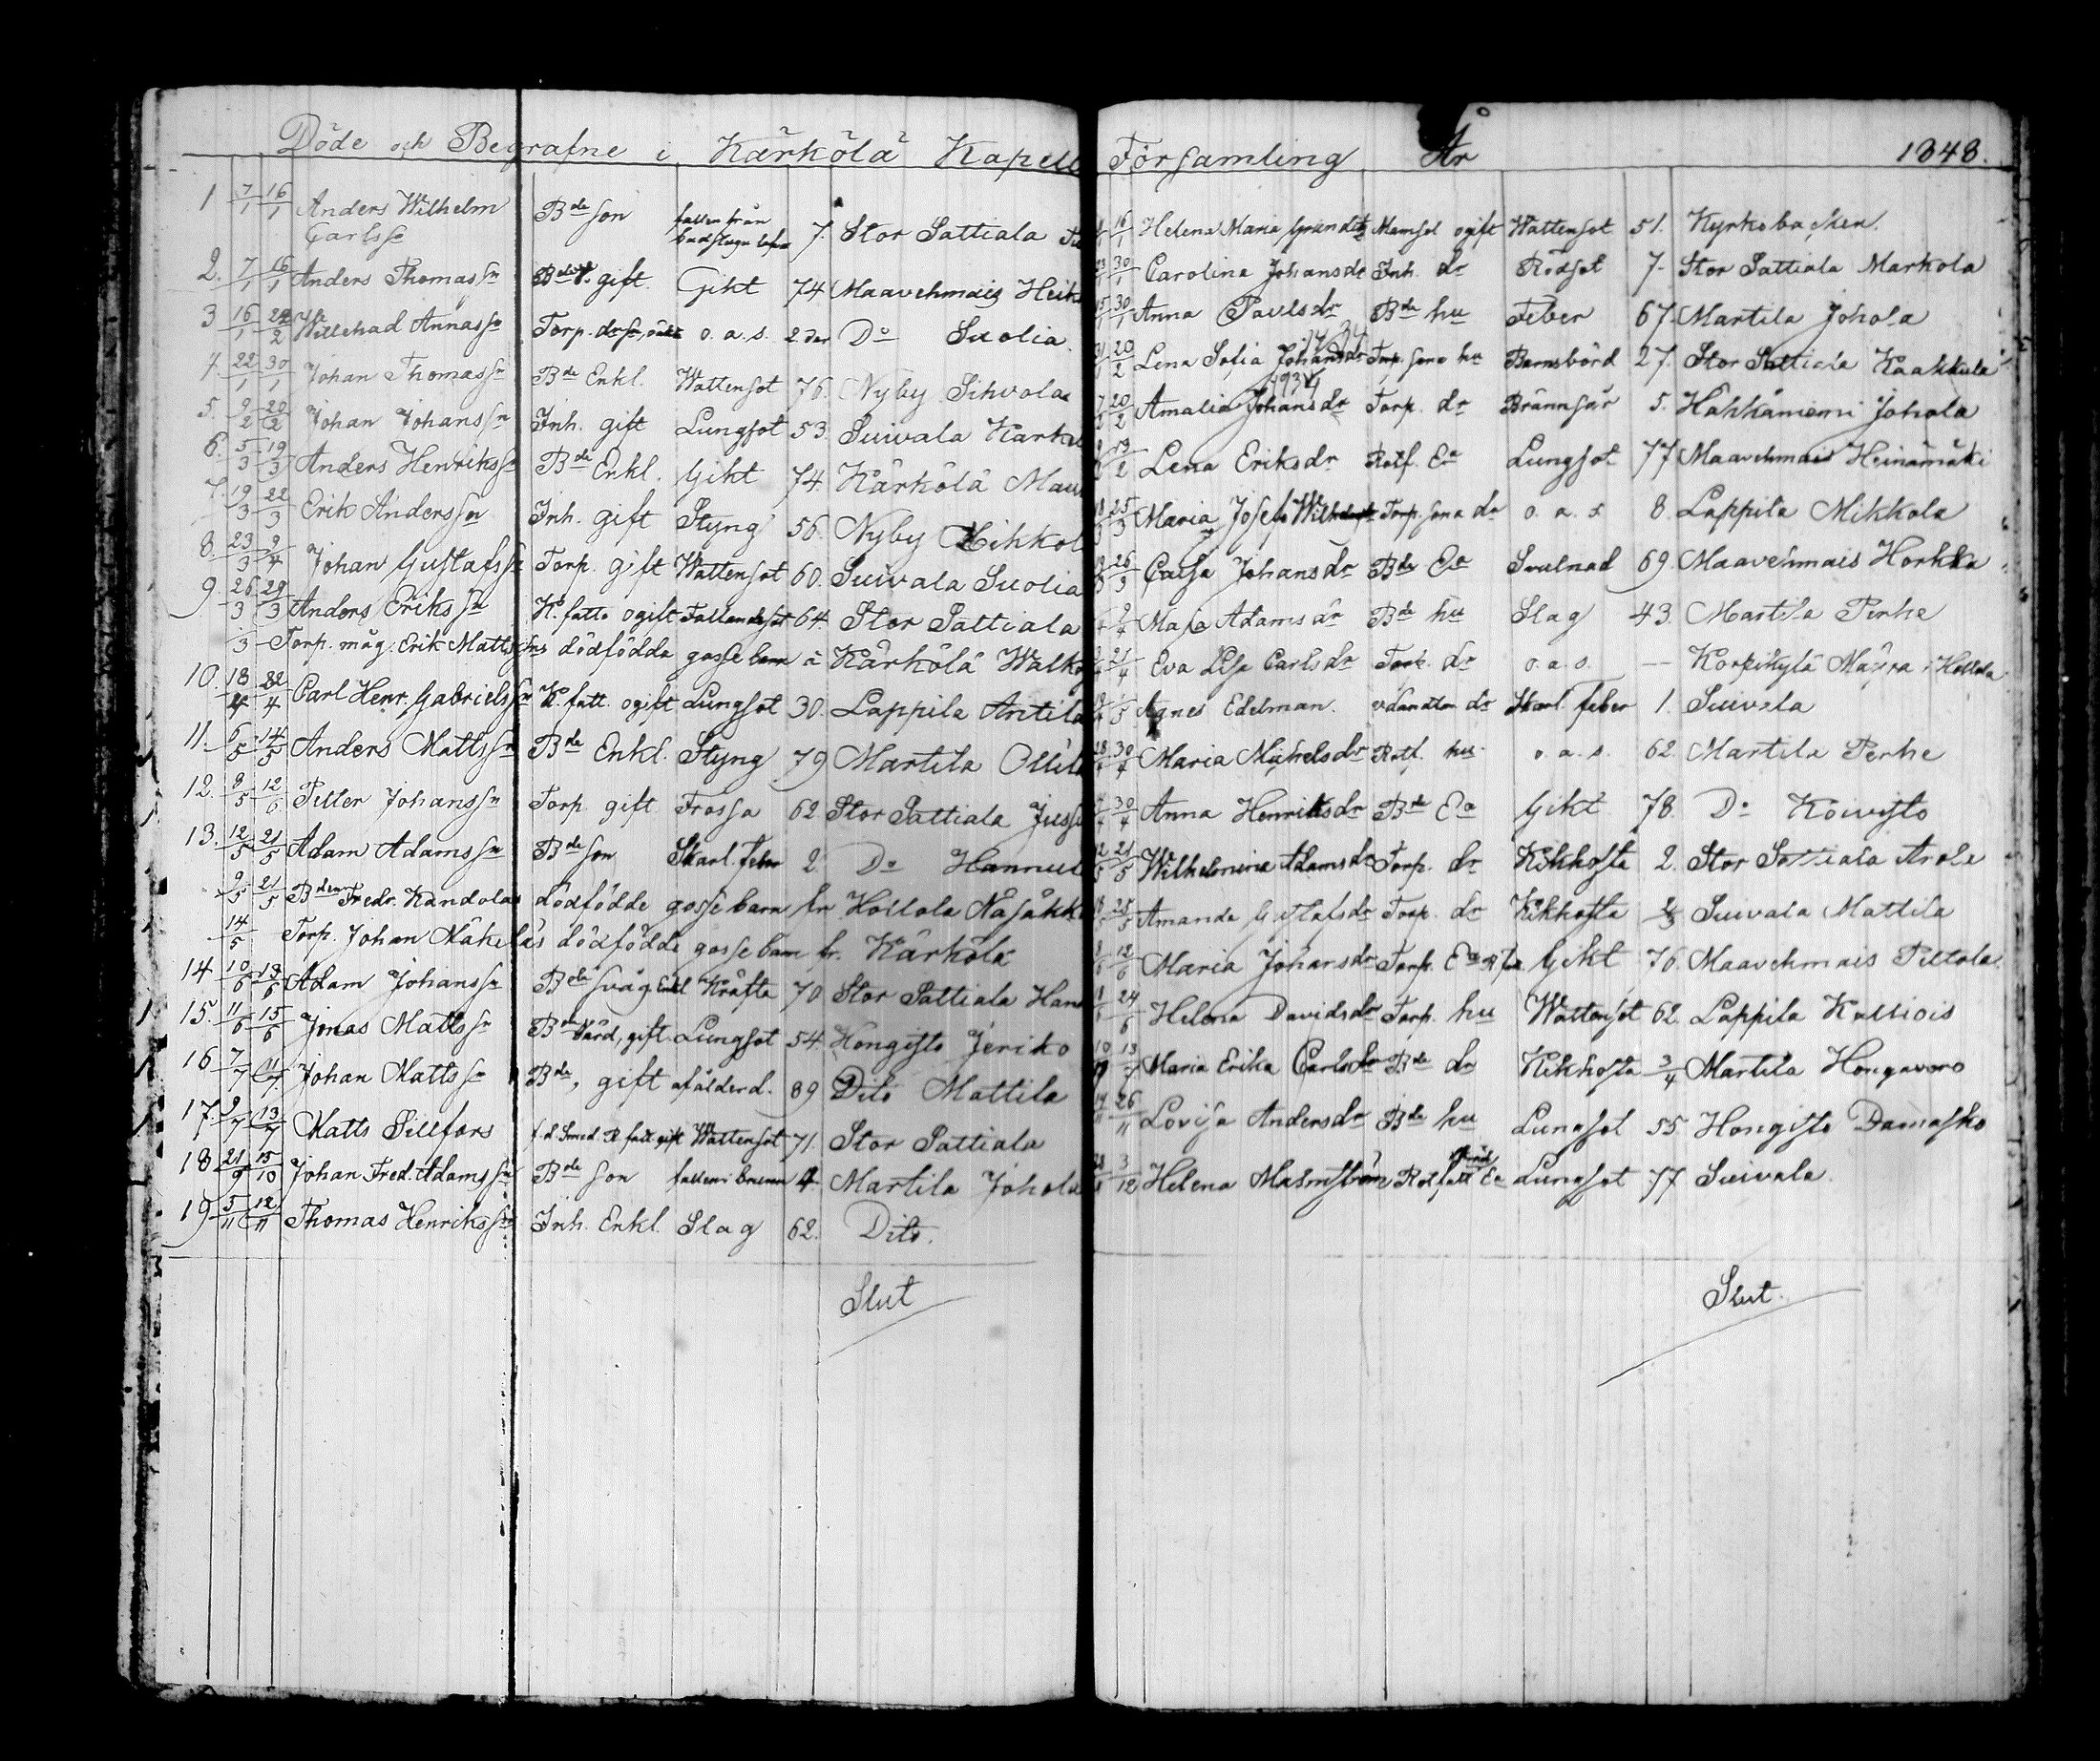 Döde och Begrafne i Kärkölä Kapell
1 7/1 16/1 Anders Wilhelm Bde son fallen från 7. Stor Sattiala
Carlss
2. 7/1 16/1 Anders Thomass:n gift. Gikt 74 Maavehmais
3 16/1 Willehad Annass:n Torp. o. a. s. Do Suolia.
4. 22/1 30/1 Johan Thomass:n Bde Enkl. Wattensot 76. Nyby Sihvola
5. 9/2 20/2 Johan Johanss:n Inh. gift Lungsot 53. Suivala
6. 5/3 19/3 Anders Henrikss:n Bde Enkl. Gikt 74. Kärkölä
7. 19/3 22/3 Erik Anderss:n Inh. gift Styng 56. Nyby
8. 23/3 9/4 Johan Gustafss:n Torp. gift Wattensot 60. Suivala Suolia
9 26/3 29/3 Anders Erikss:n K. fatt. ogift Fallandesot 64. Stor Sattiala
/3 Torp. måg. Erik Mattss:ns dödfödda gosse barn å Kärkölä
10. 18/4 22/4 Carl Henr. Gabrielss:n K. fatt. ogift Lungsot 30. Lappila Antila
11. 6/5 14/5 Anders Mattss:n Bde Enkl. Styng 79 Martila
12. 9/5 12/6 Petter Johanss:n Torp. gift Frossa 62 Stor Sattiala
13. 12/5 21/5 Adam Adamss:n Bde son Skarl. feber 2. Do
9/5 21/5 Bden Fredr. Kandolas dödfödde gosse barn fr Hollola
14/5 Torp. Johan Mäkeläs dödfödde gosse barn fr. Kärkölä
14 10/6 Adam Johanss:n Bde svåg. Enkl Kräfta 70 Stor Sattiala
15. 11/6 15/6 Jonas Mattss:n Bde Wärd, gift. Lungsot 54. Hongisto Jeriko
16 7/7 11/7 Johan Mattss:n Bde, gift afålderd. 89 Dito Mattila
17. 9/7 13/7 Matts Sillfors f.d. Smed. Wattensot 71. Stor Sattiala
18 21/9 15/10 Johan Fred. Adamss:n Bde son fallen i brunn 4. Martila Johola
19 5/11 12/11 Thomas Henrikss:n Inh. Enkl. Slag 62. Dito.
Slut
Församling År 1848.
16/1 Helena Maria Mamsel ogift Wattensot 51. Kyrkobacken.
30/1 Carolina Johansdr Inh. dr Rödsot 7. Stor Sattiala Markola
30/1 Anna Paulsdr Bde hu Feber 67. Martila Johola
20/2 Lena Sofia Johansdr Torp. sons hu Barnsbörd 27. Stor Sattiala Kaakkula
20/2 Amalia Johansdr Torp. dr Brännsår 5. Hähkäniemi Johola
Lena Eriksdr Rotf. Ea Lungsot 77 Maavehmais Heinämäki
25/3 Maria Josefa Torp. sons dr o. a. s. 8. Lappila Mikkola
26/3 Cajsa Johansdr Bde Ea Svulnad 69. Maavehmais Horkka
Maja Adamsdr Bde hu Slag 43. Martila Perhe
Eva Lisa Carlsdr Torp. dr o. a. s. — Korpikylä Mäyra i Hollola
Agnes Edelman. dr Skarl. feber 1. Suivala
30/4 Maria Michelsdr Rotf. hu o. a. s. 62. Martila Perhe
30/4 Anna Henriksdr Bde Ea Gikt 78. Do Kouvisto
21/5 Wilhelmina Adamsdr Torp. dr Kikhosta 2. Stor Sattiala Arola
25/5 Amanda Gustafsdr Torp. dr Kikhosta Suivala Mattila
12/6 Maria Johansdr Torp. Ea Gikt 76. Maavehmais Pietola.
24/6 Helena Davidsdr Torp. hu Wattensot 62. Lappila Kalliois
Maria Erika Carlsdr Bde dr Kikhosta 3/4 Martila Hongavoro
26/11 Lovisa Andersdr Bde hu Lungsot 55. Hongisto Damasko
3/12 Helena Malmström Ea Lungsot 77. Suivala.
Slut.